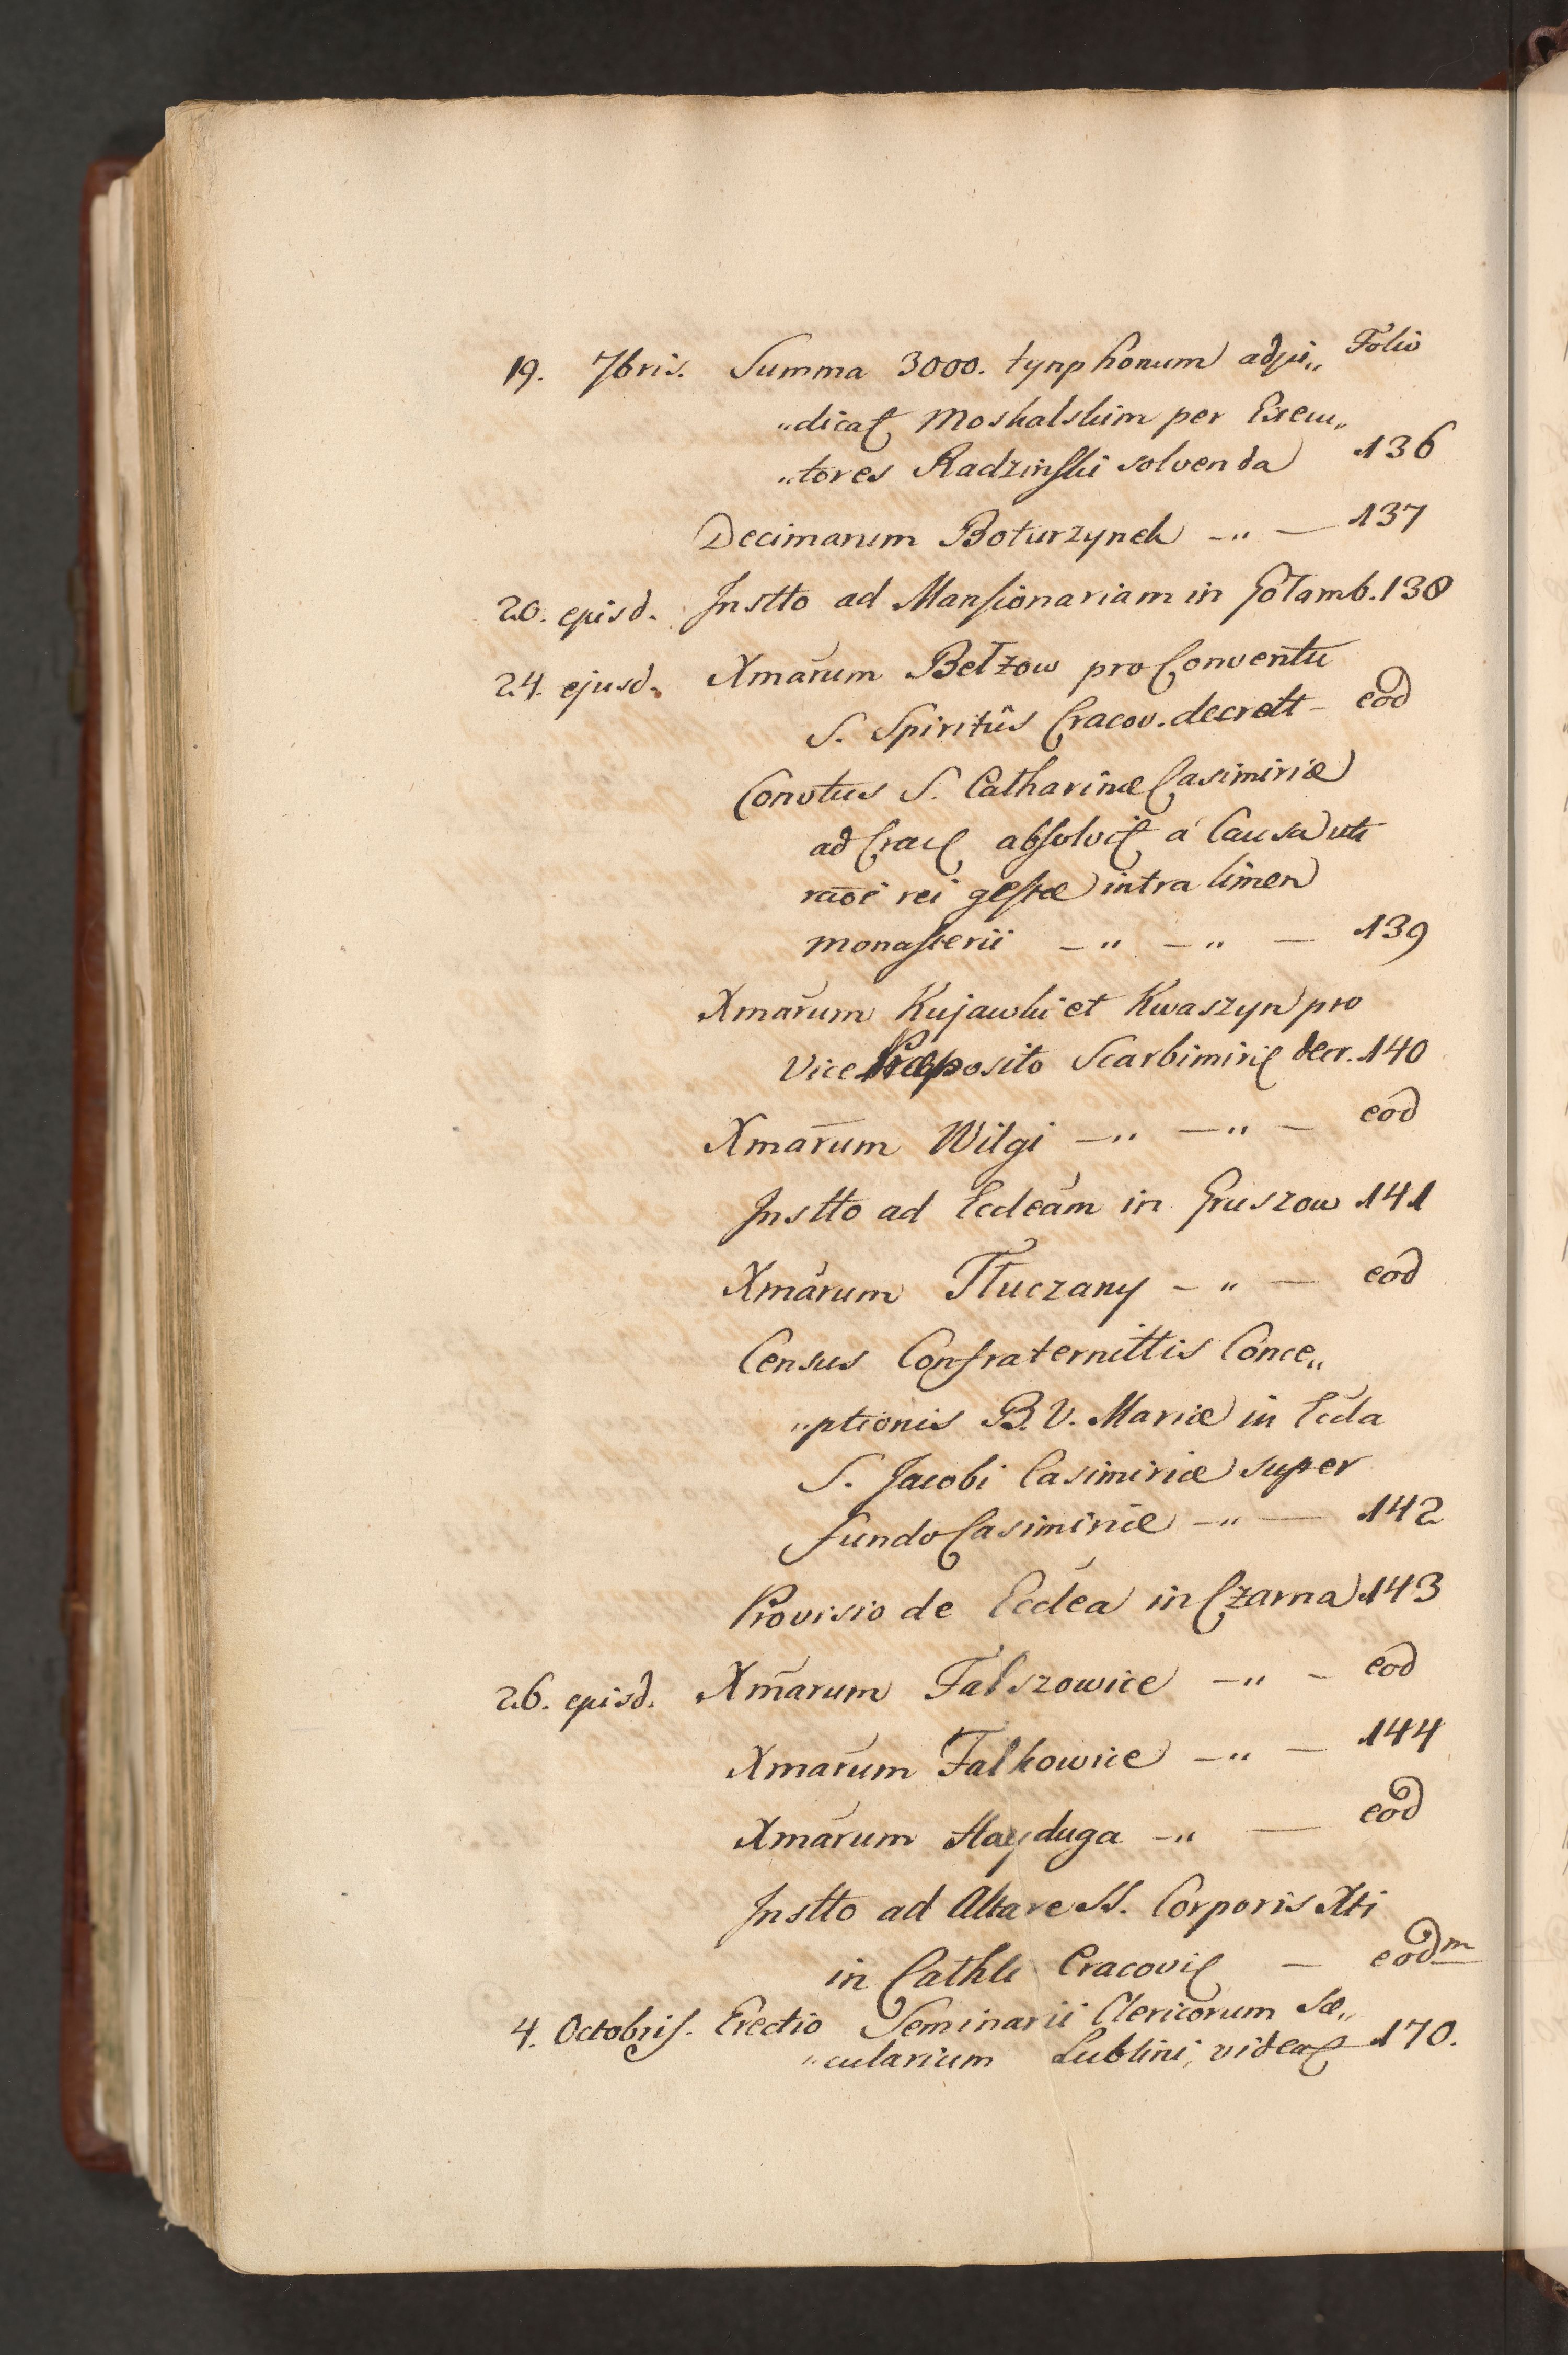 19. 7bris. Summa 3000. tynphonum adju„ Folio
„dicaʈ Moskalskim per Execu„
„tores Radzinſki solvenda 136
Decimarum Boturzynek -„ — 137
20. ejusd. Jnstto ad Manſionariam in Gołamb. 138
24. ejusd. Xmarum Bełzow pro Conventu
S. Spiritûs Cracov. decrett - eod
Convtus S. Catharinæ Casimiriæ
ad Crac absolvi á Causa uti
raoē rei geſtæ intra limen
monaſterii -„ -„ — 139
Xmarum Kujawki et Kwaszyn pro
Vice Præposito Scarbimiri decr. 140
Xmarum Wilgi -„ -„ - eod
Jnstto ad Eccleám in Gruszow 141
Xmarum Tłuczany -„ — eod
Census Confraternittis Conce„
„ptionis B. V. Mariæ in Eccla
S. Jacobi Casimiriæ super
fundo Casimiriæ -„ — 142
Provisio de Eccléa in Czarna 143
26. ejusd. Xmarum Falszowice -„ - eod
Xmarum Falkowice -„ — 144
Xmarum Hayduga -„ — eod
Jnstto ad Altare SS. Corporis Xti
in Cathli Cracovi — eodm
4. Octobriſ. Erectio Seminarii Clericorum Sæ„
„cularium Lublini, videa 170.